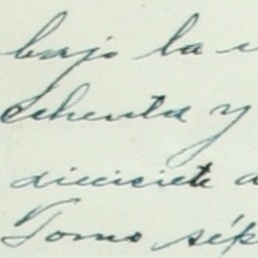 bajo la
ochenta y
diecisiete
Tomo sép